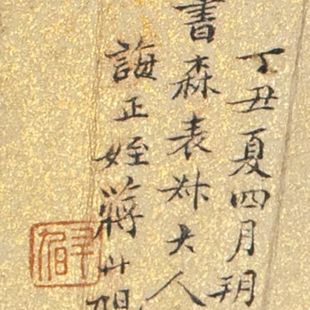 丁丑夏四月朔
書森表叔大人
誨正姪蔣升